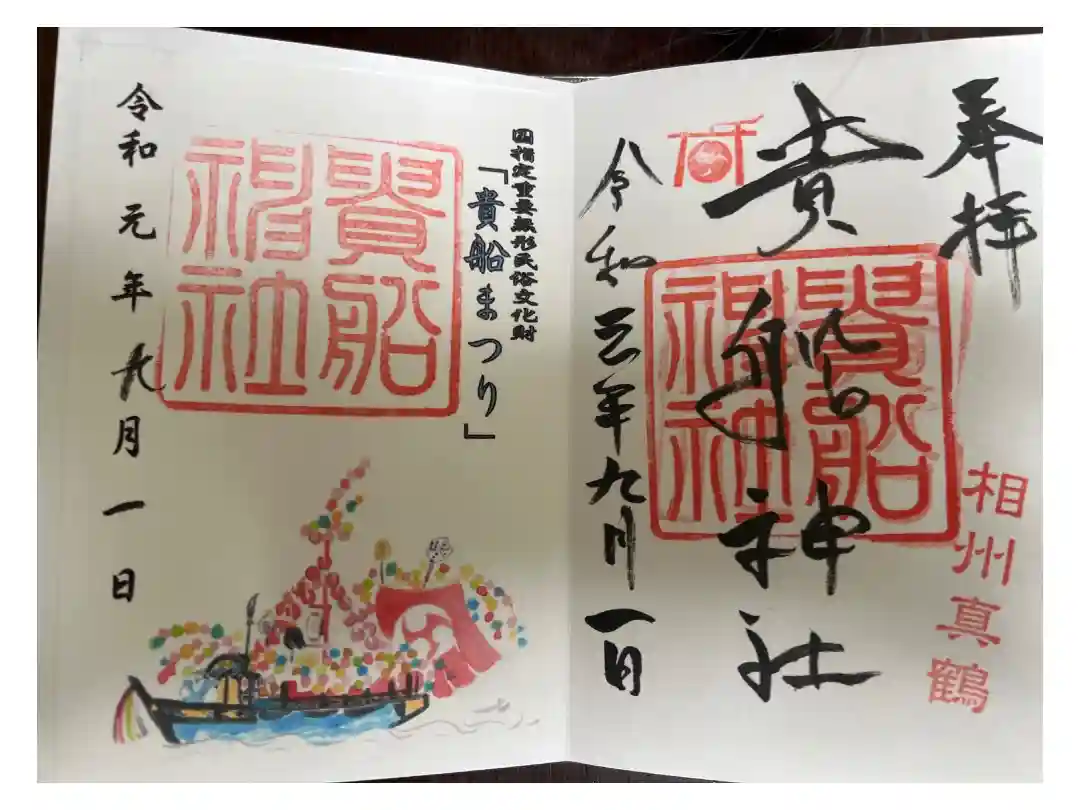 奉拝
相州真鶴
貴船神社
貴船神社
令和三年九月一日
国指定重要無形民俗文化財
「貴船まつり」
貴船神社
令和元年九月一日